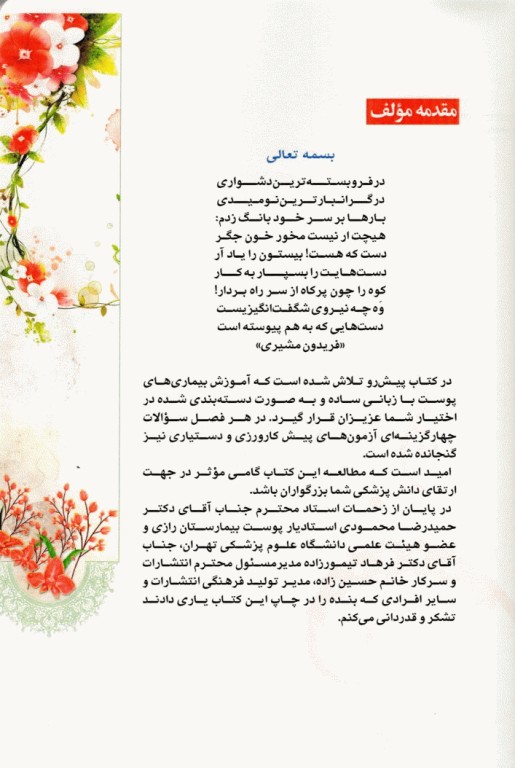 مقدمه مؤلف
بسمه تعالی
در فرو بسته‌ترین دشواری
در گرانبارترین نومیدی
بارها بر سر خود بانگ زدم:
هیچت ار نیست مخور خون جگر
دست که هست! بیستون را یاد آر
دست‌هایت را بسپار به کار
کوه را چون پرکاه از سر راه بردار!
وَه چه نیروی شگفت‌انگیزیست
دست‌هایی که به هم پیوسته است
«فریدون مشیری»
در کتاب پیش‌رو تلاش شده است که آموزش بیماری‌های
پوست با زبانی ساده و به صورت دسته‌بندی شده در
اختیار شما عزیزان قرار گیرد. در هر فصل سؤالات
چهارگزینه‌ای آزمون‌های پیش کارورزی و دستیاری نیز
گنجانده شده است.
امید است که مطالعه این کتاب گامی مؤثر در جهت
ارتقای دانش پزشکی شما بزرگواران باشد.
در پایان از زحمات استاد محترم جناب آقای دکتر
حمیدرضا محمودی استادیار پوست بیمارستان رازی و
عضو هیئت علمی دانشگاه علوم پزشکی تهران، جناب
آقای دکتر فرهاد تیمورزاده مدیرمسئول محترم انتشارات
و سرکار خانم حسین زاده، مدیر تولید فرهنگی انتشارات و
سایر افرادی که بنده را در چاپ این کتاب یاری دادند
تشکر و قدردانی می‌کنم.